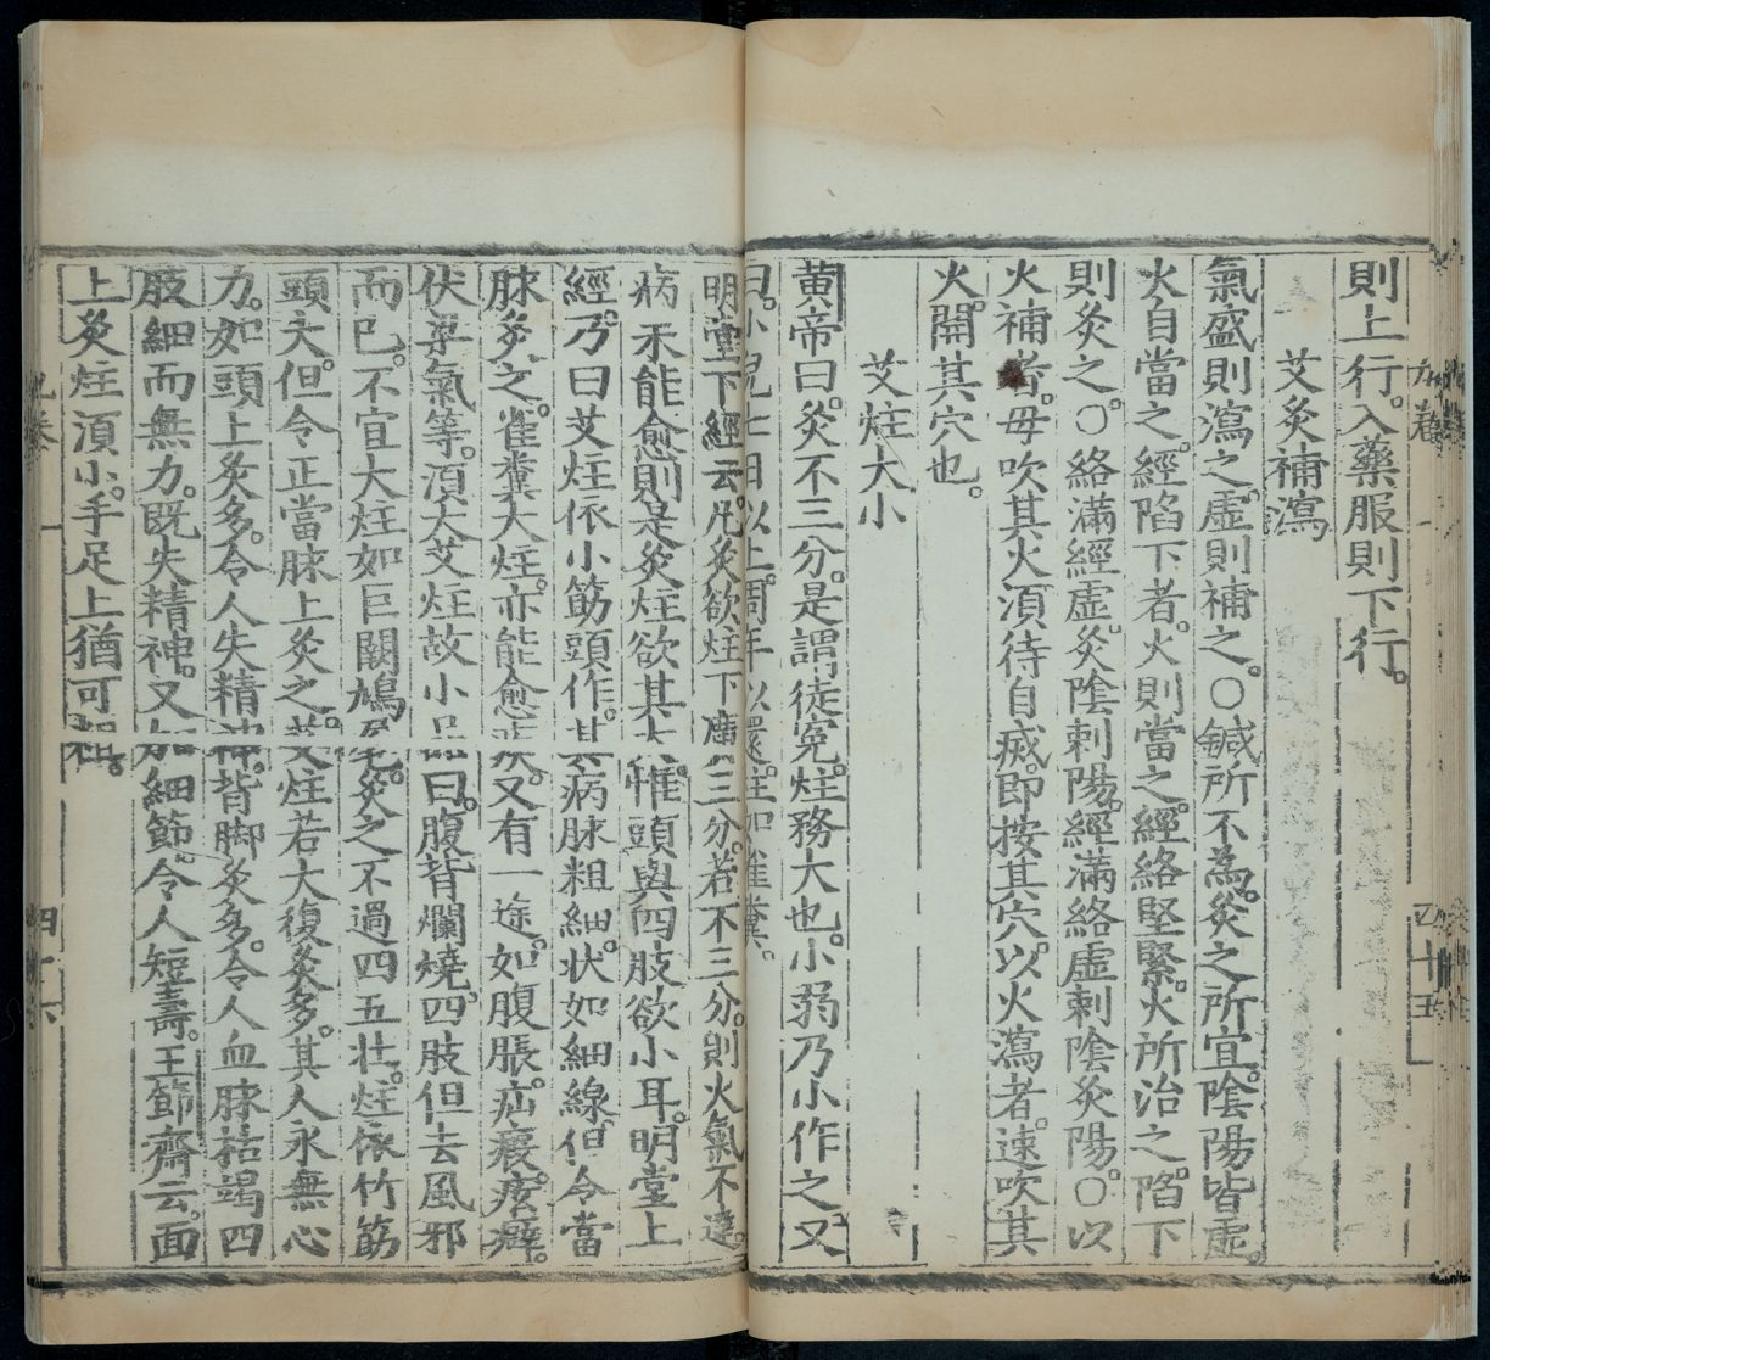 則上行。入藥服則下行。
艾灸補瀉
氣盛則瀉之。虛則補之。○鍼所不為。灸之所宜。陰陽皆虛。
火自當之。經陷下者。火則當之。經絡堅緊。火所治之。陷下
則灸之。○絡滿經虛。灸陰刺陽。經滿絡虛。刺陰灸陽。○以
火補者。毋吹其火。須待自滅。即按其穴。以火瀉者。速吹其
火。開其穴也。
艾炷大小
黃帝曰。灸不三分。是謂徒冤。炷務大也。小弱乃小作之。又
曰。小兒七日以上。周年以還。炷如雀糞。
明堂下經云。凡灸欲炷下廣三分。若不三分。則火氣不達。
病未能愈。則是灸炷欲其大。惟頭與四肢欲小耳。明堂上
經。乃曰艾炷依小筯頭作。其病脉粗細。狀如細線。但令當
脉灸之。雀糞大炷。亦能愈疾。又有一途。如腹脹。疝瘕。痃癖。
伏梁氣等。須大艾炷。故小品曰。腹背爛燒。四肢但去風邪
而已。不宜大炷。如巨闕鳩尾。灸之不過四五壯。炷依竹筯
頭大。但令正當脉上灸之。艾炷若大。復灸多。其人永無心
力。如頭上灸多。令人失精神。背脚灸多。令人血脉枯竭。四
肢細而無力。既失精神。又加細節。令人短壽。王節齋云。面
上灸炷須小。手足上猶可粗。